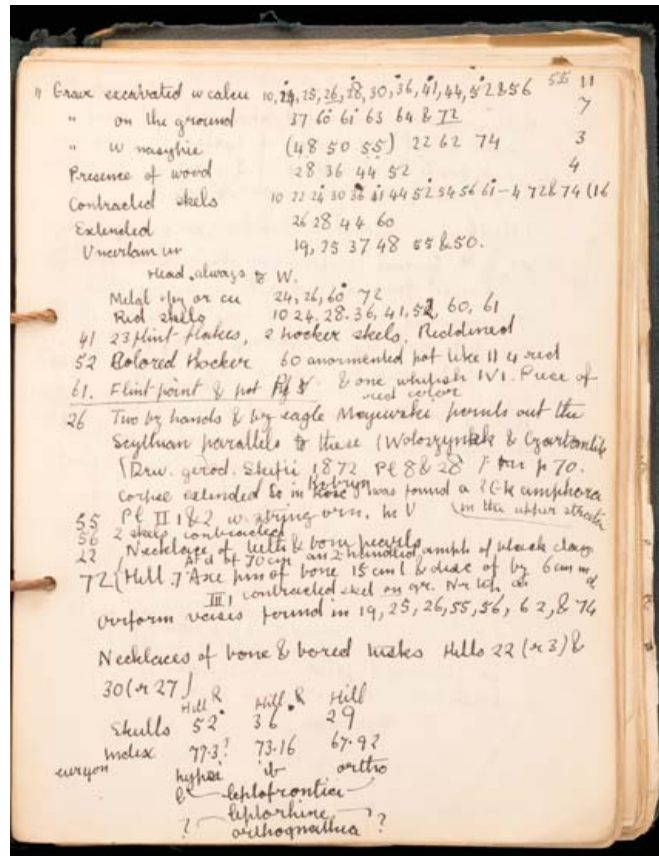 " Grave excavated w calcu 10, 24, 25, 26, 28, 30, 36, 41, 44, 52 & 56 55 11
" on the ground 37 60 61 63 64 & 72 7
" W (48 50 55) 22 62 74 3
Presence of wood 28 36 44 52 4
Contracted skels 10 22 24 30 36 41 44 52 54 56 61-4 72 & 74 (16
Extended 26 28 44 60
Uncertain 19, 25 37 48 55 & 50.
Head always to W.
Metal or cu 24, 26, 60 72
Red skels 10 24, 28. 36, 41, 52, 60, 61
41 23 flint flakes, 2 hocker skels, Reddened
52 Colored Hocker 60 anormented pot like 11 4 red
61. Flint point & pot & one whitish IV1. Piece of
red color
26 Two by hands & by eagle points out the
Scythian parallels to these (
1872 Pl 8 & 28 p 70.
corpse extended So in was found a amphora
in the upper
55 Pl II 1 & 2 w. string orn. in V
56 2 skels contracted
22 Necklace of teeth & bone pearls
At d of 70 cm an 2 handled amph of black clay
72 (Hill 7 Axe of bone 15 cm l & disc of by 6 cm
III 1 contracted skel on gr.
oviform vases found in 19, 25, 26, 55, 56, 62, & 74
Necklaces of bone & bored tusks Hills 22 (r 3) &
30 (r 27)
Hill R Hill R Hill
Skulls 52 36 29
Index 77.3? 73.16 67.92
euryon hypsi ib ortho
leptofrontia
? leptorhine ?
orthognathia